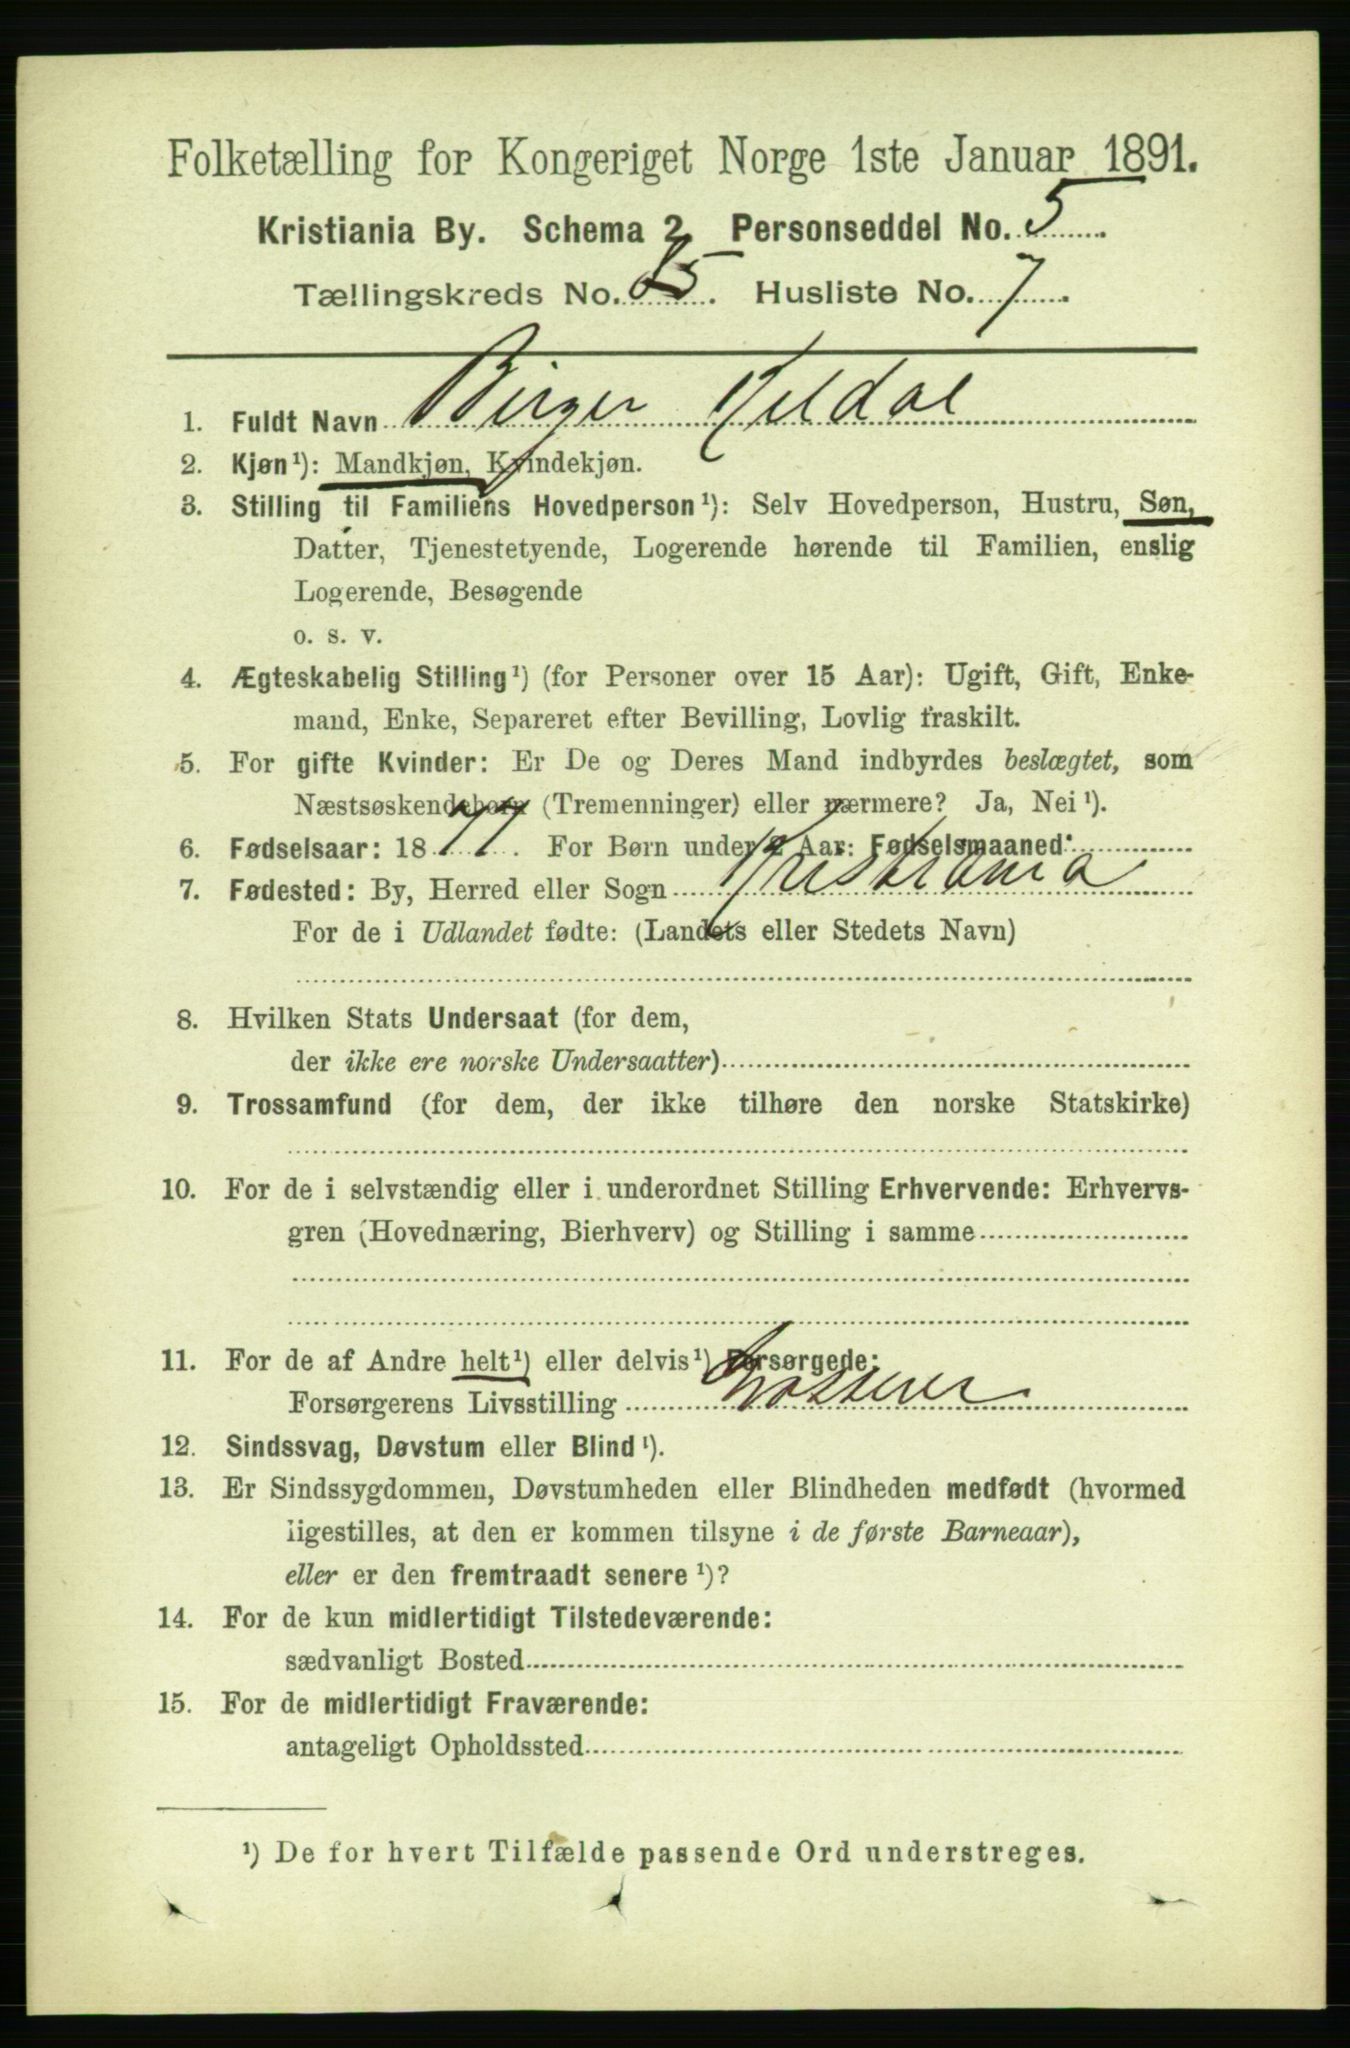 Folketælling for Kongeriget Norge 1ste Januar 1891.
Kristiania By. Schema 2. Personseddel No. 5
Tællingskreds No. 65. Husliste No. 7.
1. Fuldt Navn Birger Keldal
2. Kjøn¹): Mandkjøn, Kvindekjøn.
3. Stilling til Familiens Hovedperson¹): Selv Hovedperson, Hustru, Søn,
Datter, Tjenestetyende, Logerende hørende til Familien, enslig
Logerende, Besøgende
o. s. v.
4. Ægteskabelig Stilling¹) (for Personer over 15 Aar): Ugift, Gift, Enke-
mand, Enke, Separeret efter Bevilling, Lovlig fraskilt.
5. For gifte Kvinder: Er De og Deres Mand indbyrdes beslægtet, som
Næstsøskendebørn (Tremenninger) eller nærmere? Ja, Nei¹).
6. Fødselsaar: 1877. For Børn under 2 Aar: Fødselsmaaned:
7. Fødested: By, Herred eller Sogn Kristiania
For de i Udlandet fødte: (Landets eller Stedets Navn)
8. Hvilken Stats Undersaat (for dem,
der ikke ere norske Undersaatter)
9. Trossamfund (for dem, der ikke tilhøre den norske Statskirke)
10. For de i selvstændig eller i underordnet Stilling Erhvervende: Erhvervs-
gren (Hovednæring, Bierhverv) og Stilling i samme
11. For de af Andre helt¹) eller delvis¹) Forsørgede:
Forsørgerens Livsstilling Grosserer
12. Sindssvag, Døvstum eller Blind¹).
13. Er Sindssygdommen, Døvstumheden eller Blindheden medfødt (hvormed
ligestilles, at den er kommen tilsyne i de første Barneaar),
eller er den fremtraadt senere¹)?
14. For de kun midlertidigt Tilstedeværende:
sædvanligt Bosted
15. For de midlertidigt Fraværende:
antageligt Opholdssted
¹) De for hvert Tilfælde passende Ord understreges.